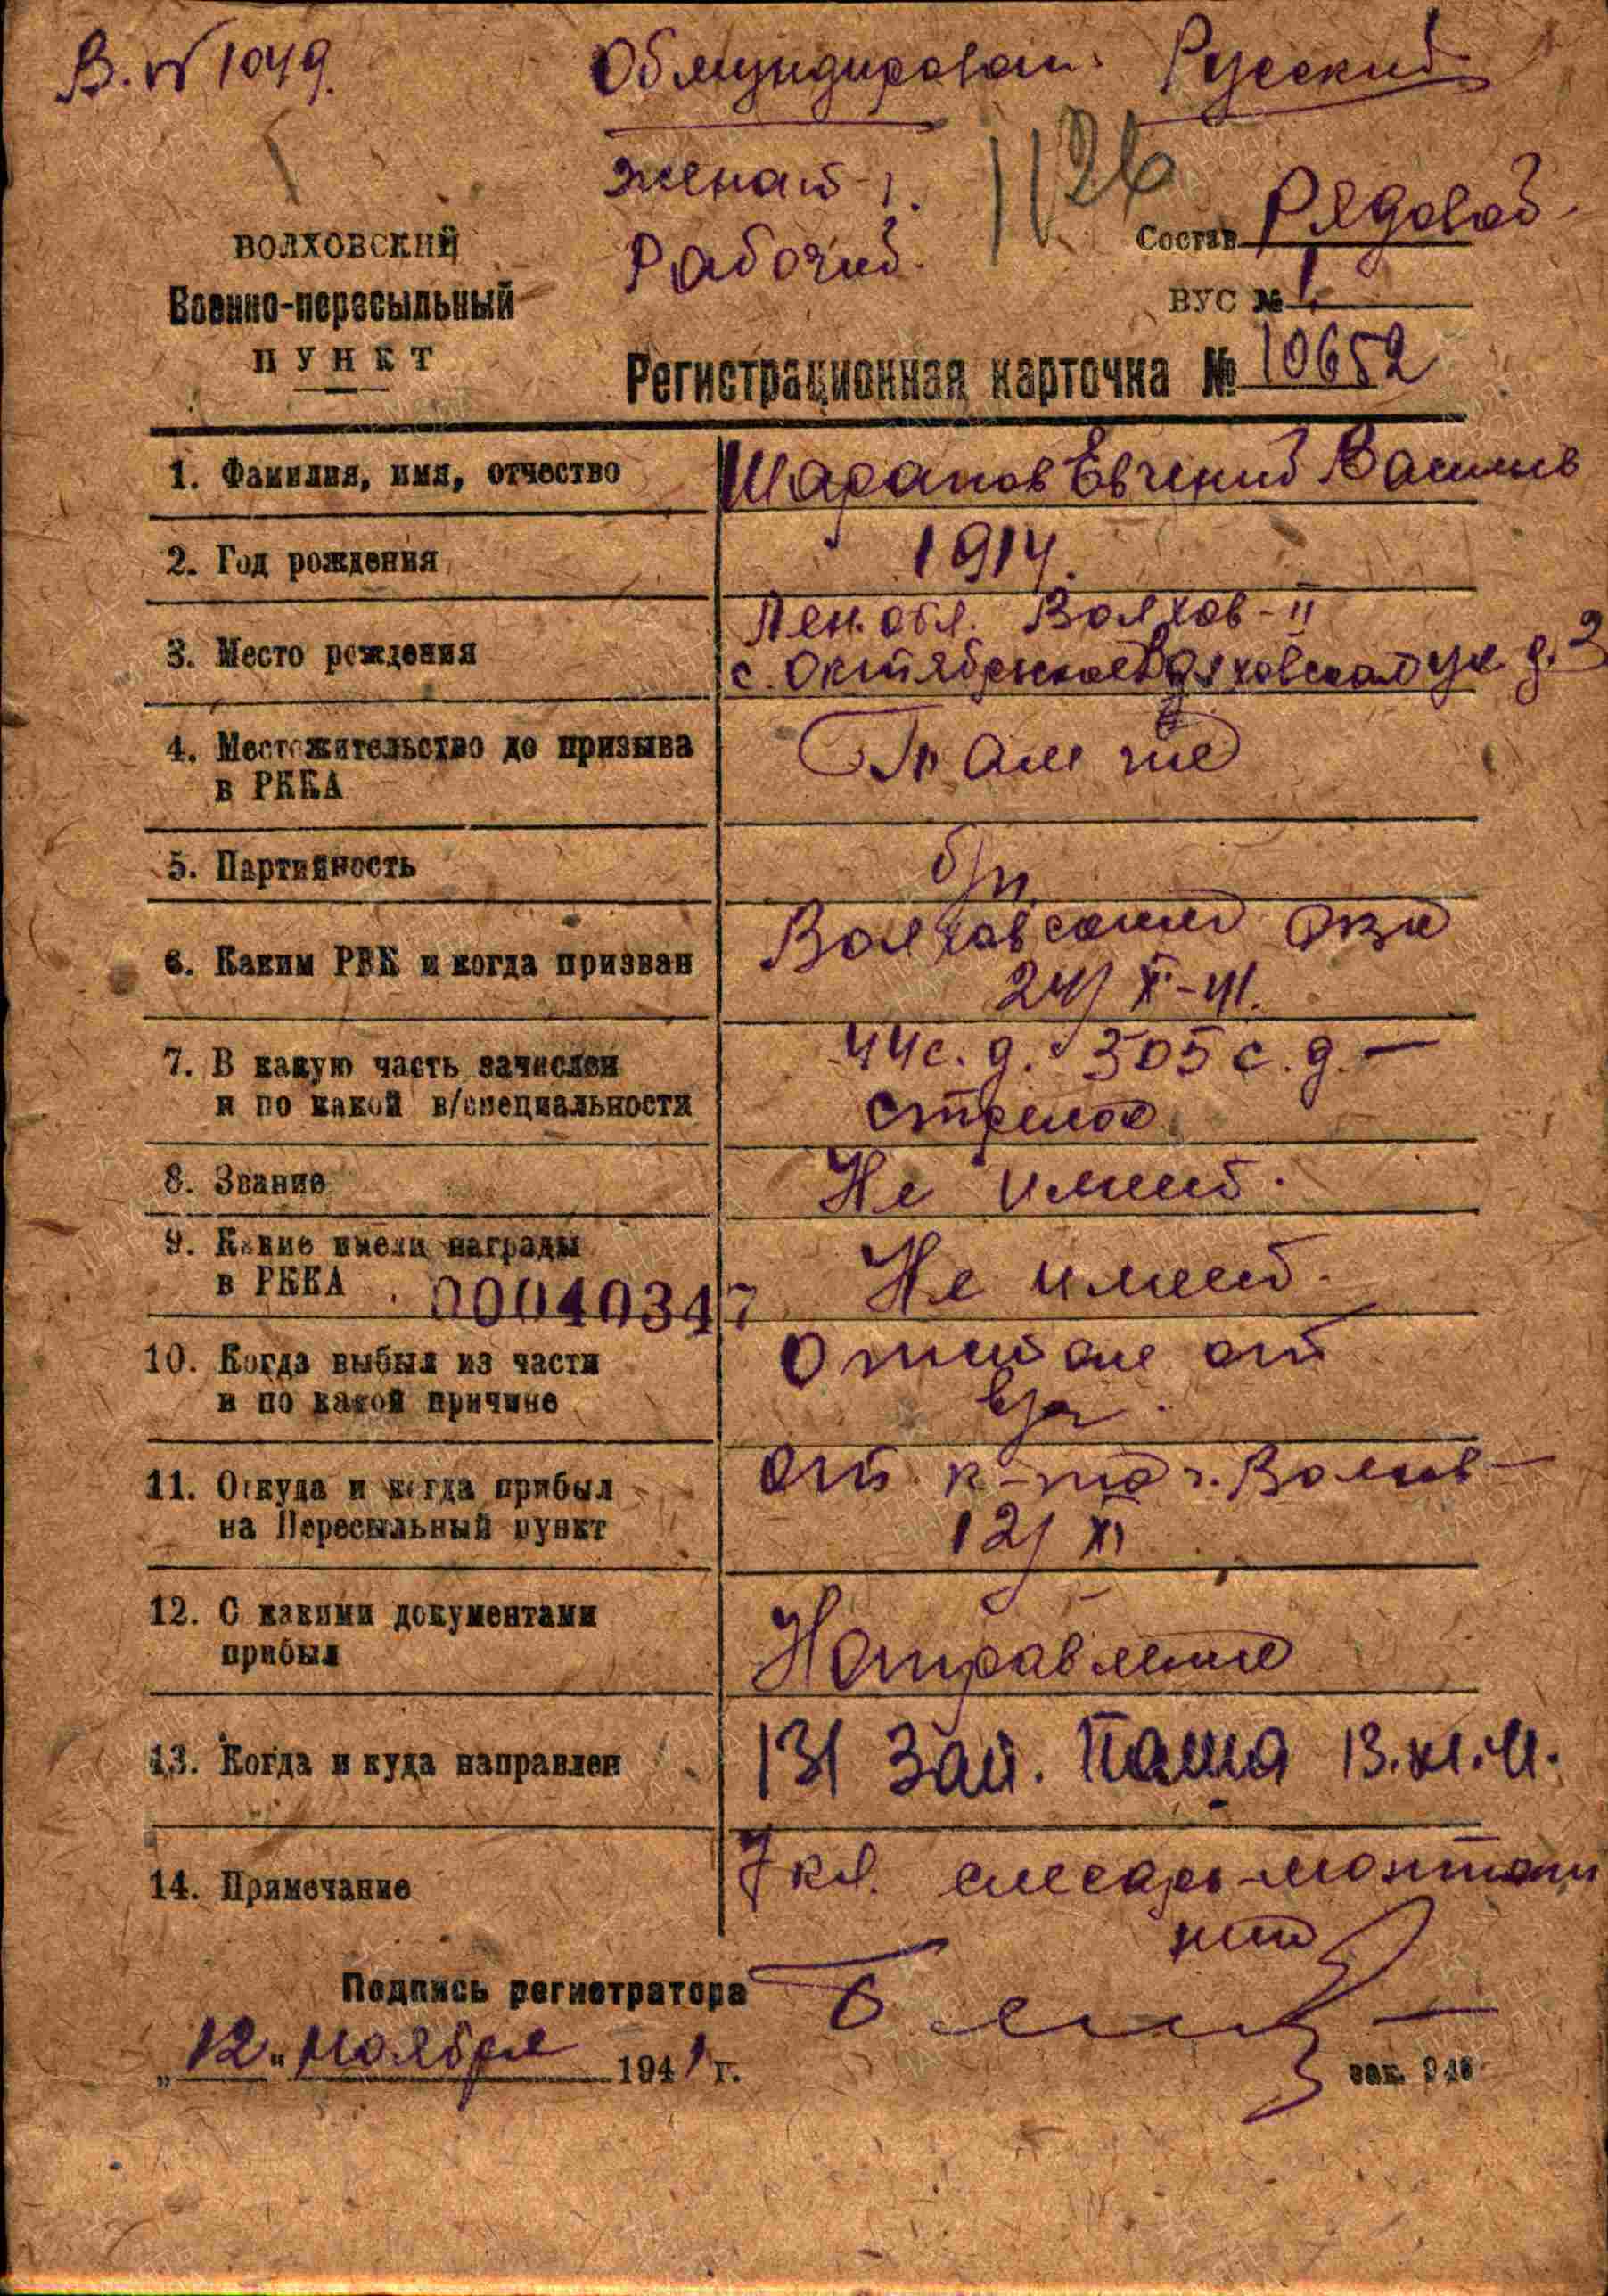 В. № 1049.
Обмундирован. Русский
женат 1.
1126
Рабочий.
Состав Рядовой
ВОЛХОВСКИЙ
Военно-пересыльный
ПУНКТ
ВУС № 1
Регистрационная карточка № 10652
1. Фамилия, имя, отчество
Шарапов Евгений Васильев
2. Год рождения
1914.
3. Место рождения
Лен. обл. Волхов-II
с. Октябрьское Волховская ул д. 3
4. Местожительство до призыва
в РККА
Там же
5. Партийность
б/п.
6. Каким РВК и когда призван
Волховским
24/X-41.
7. В какую часть зачислен
и по какой в/специальности
44 с. д. 305 с. д. —
стрелок
8. Звание
Не имеет.
9. Какие имели награды
в РККА
Не имеет.
00040347
10. Когда выбыл из части
и по какой причине
от
в/ч.
11. Откуда и когда прибыл
на Пересыльный пункт
От к-та г. Волхов —
12/XI
12. С какими документами
прибыл
Направление
13. Когда и куда направлен
131 Зап. Паша 13.XI.41.
14. Примечание
7 кл. слесарь-монтаж
Подпись регистратора
„12“ Ноября 1941 г.
зак. 946